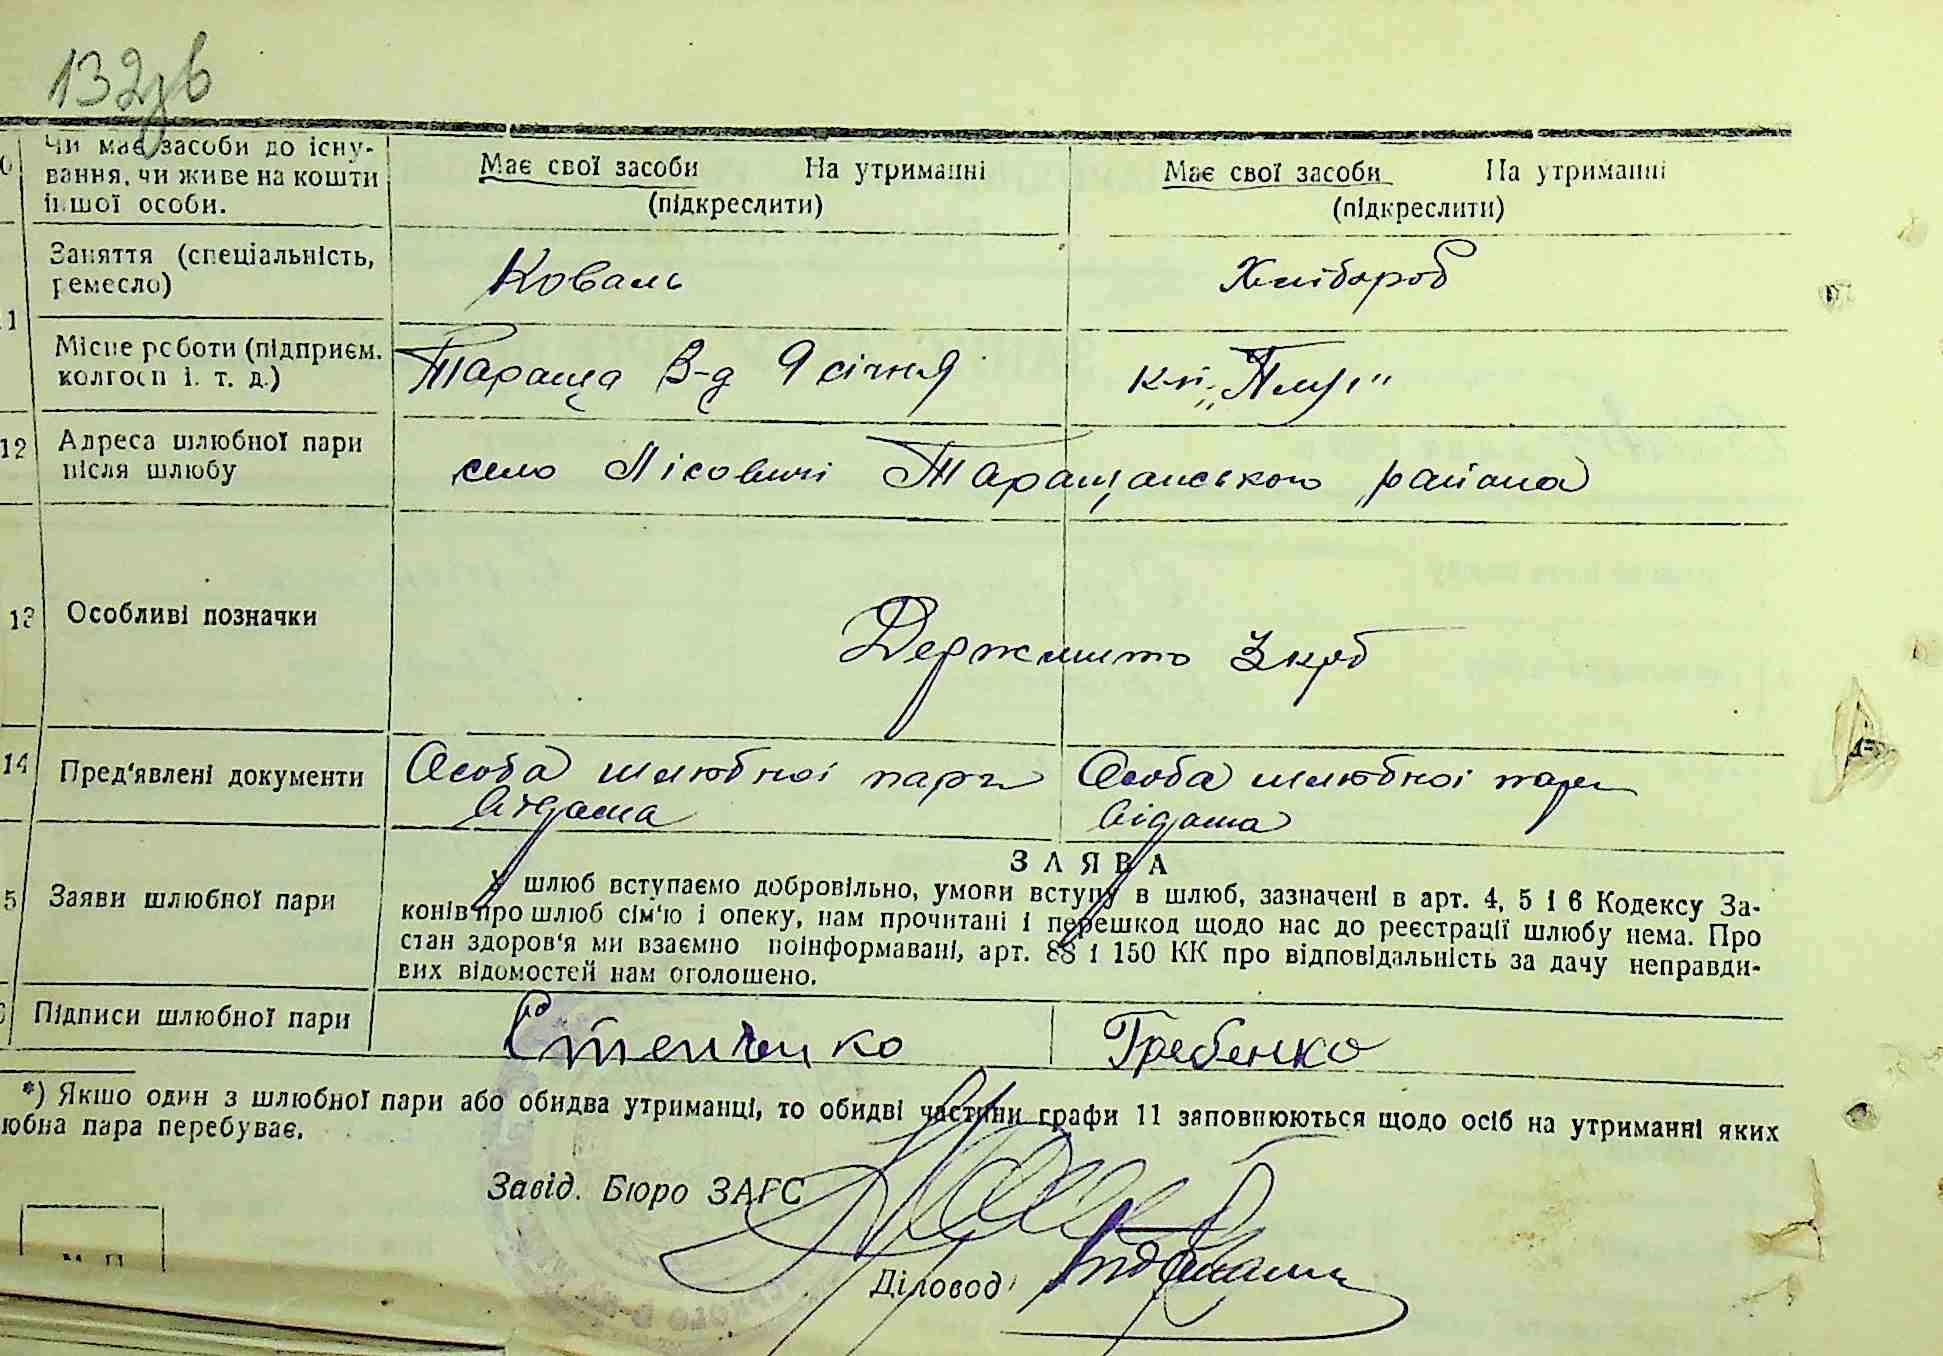 132зв
Чи має засоби до існу-
вання, чи живе на кошти
іншої особи.
Має свої засоби На утриманні
(підкреслити)
Має свої засоби На утриманні
(підкреслити)
Заняття (спеціальність,
ремесло)
Коваль
Хлібороб
11
Місце роботи (підприєм.
колгосп і. т. д.)
Тараща З-д 9 січня
к-п „Плуг"
12
Адреса шлюбної пари
після шлюбу
село Лісовичі Таращанського района
13
Особливі позначки
Держмито 3 крб
14
Пред'явлені документи
Особа шлюбної пари
відома
Особа шлюбної пари
відома
5
Заяви шлюбної пари
ЗАЯВА
У шлюб вступаємо добровільно, умови вступу в шлюб, зазначені в арт. 4, 5 і 6 Кодексу За-
конів про шлюб сім'ю і опеку, нам прочитані і перешкод щодо нас до реєстрації шлюбу нема. Про
стан здоров'я ми взаємно поінформавані, арт. 88 і 150 КК про відповідальність за дачу неправди-
вих відомостей нам оголошено.
Підписи шлюбної пари
Гребенко
*) Якшо один з шлюбної пари або обидва утриманці, то обидві частини графи 11 заповнюються щодо осіб на утриманні яких
юбна пара перебуває.
Завід. Бюро ЗАГС
Діловод